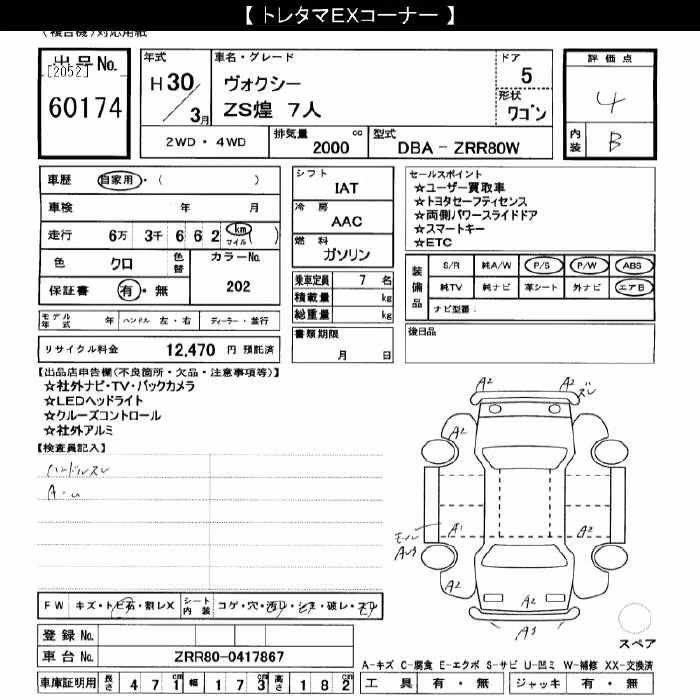 【 トレタマEXコーナー 】
(複合機)対応用紙
出品No.
[2052]
60174
年式
H30
3月
車名・グレード
ヴォクシー
ZS煌 7人
ドア
5
形状
ワゴン
評価点
4
内装
B
2WD・4WD
排気量
2000 cc
型式
DBA - ZRR80W
車歴 自家用・( )
車検 年 月
走行 6万 3千 6 6 2 km マイル ( )
色 クロ
色替
カラーNo.
202
保証書 有・無
モデル年式 年
ハンドル 左・右
ディーラー・並行
リサイクル料金 12,470 円 預託済
シフト
IAT
冷房
AAC
燃料
ガソリン
乗車定員 7 名
積載量 kg
総重量 kg
書類期限
月 日
セールスポイント
☆ユーザー買取車
☆トヨタセーフティセンス
☆両側パワースライドドア
☆スマートキー
☆ETC
装備品
S/R 純A/W P/S P/W ABS
純TV 純ナビ 革シート 外ナビ エアB
ナビ型番:
後日品
【出品店申告欄(不良箇所・欠品・注意事項等)】
☆社外ナビ・TV・バックカメラ
☆LEDヘッドライト
☆クルーズコントロール
☆社外アルミ
【検査員記入】
ハンドルスレ
A2
A2
スレ
A2
A2
モール
A1
A2
A2
A2
A2
A3
FW キズ・トビ石・割レX
シート内装 コゲ・穴・汚レ・シミ・破レ・スレ
登録No.
車台No. ZRR80-0417867
車庫証明用 長さ 471cm 幅 173cm 高さ 182cm
スペア
A-キズ C-腐食 E-エクボ S-サビ U-凹ミ W-補修 XX-交換済
工具 有・無
ジャッキ 有・無